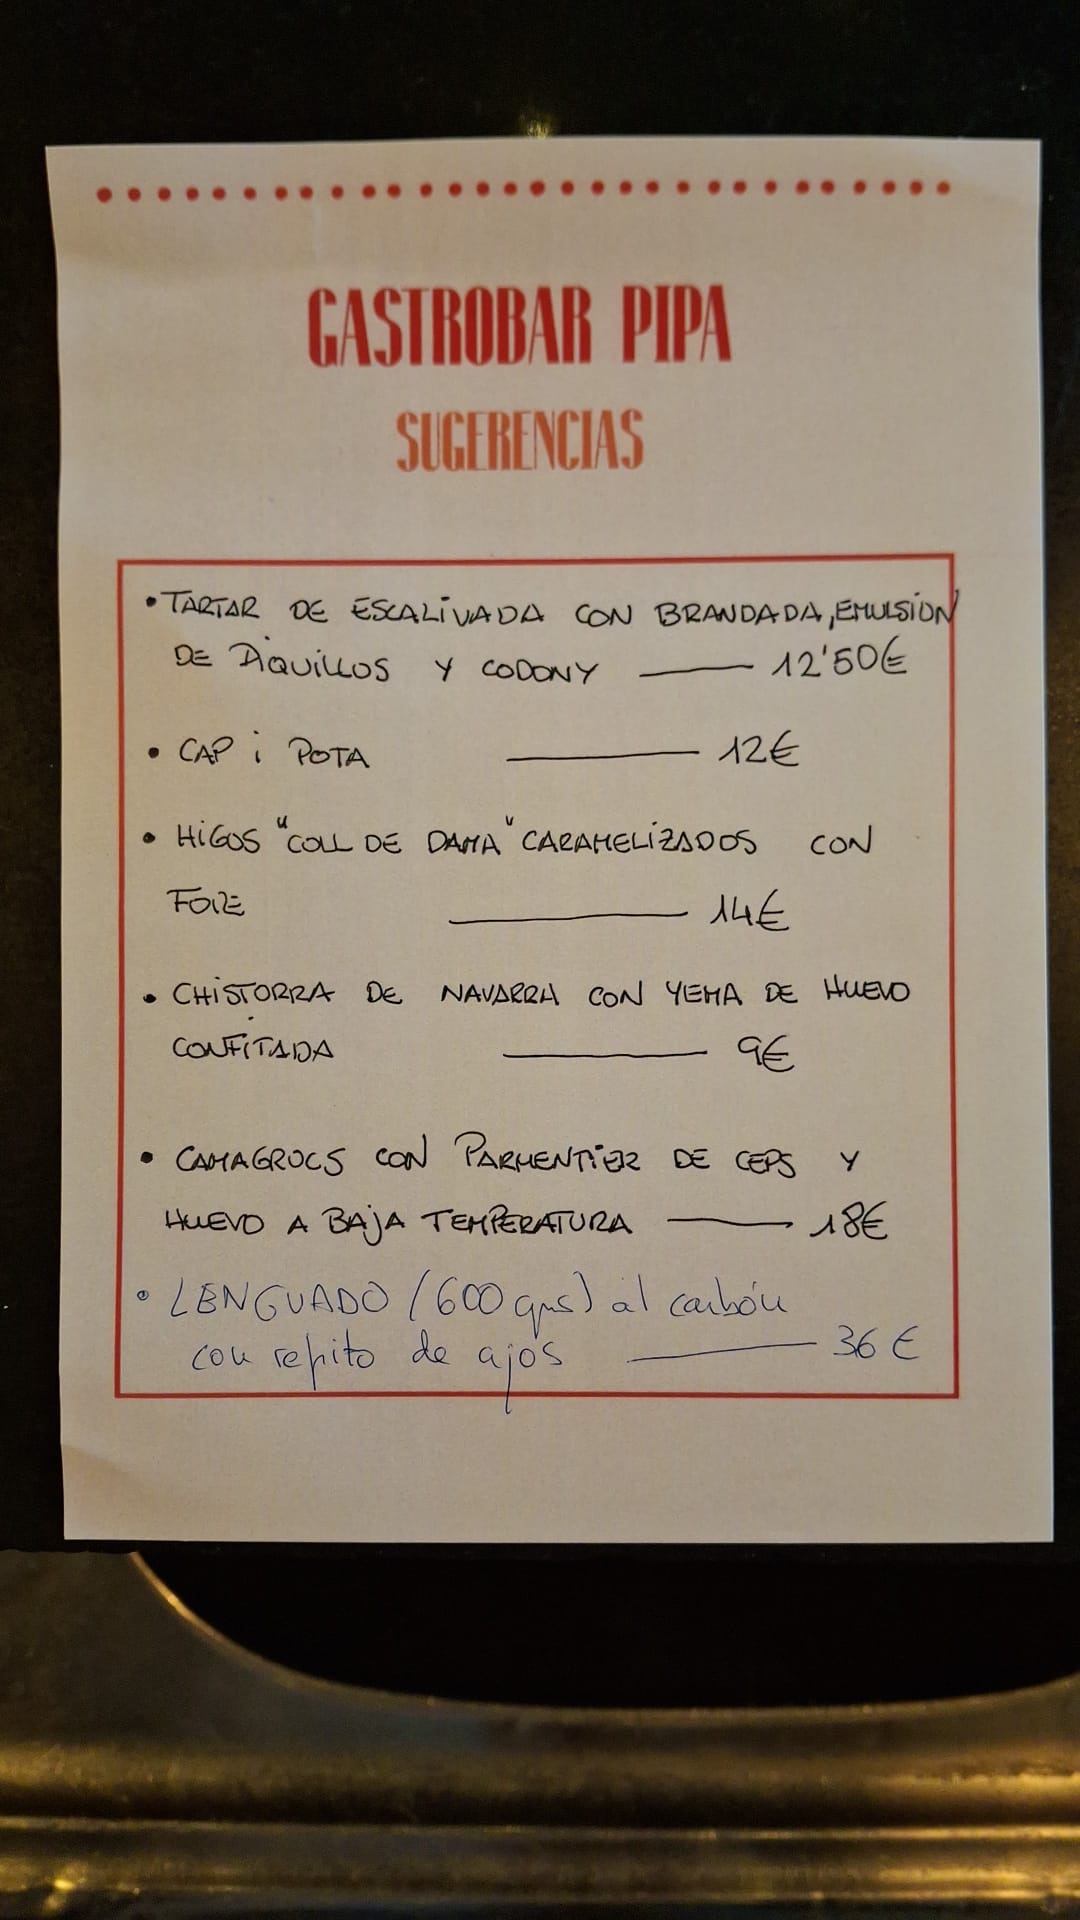 GASTROBAR PIPA
SUGERENCIAS
• TARTAR DE ESCALIVADA CON BRANDADA, EMULSIÓN
DE PIQUILLOS Y CODONY —— 12'50€
• CAP i POTA —— 12€
• HIGOS "COLL DE DAMA" CARAMELIZADOS CON
FOIE —— 14€
• CHISTORRA DE NAVARRA CON YEMA DE HUEVO
CONFITADA —— 9€
• CAMAGROCS CON PARMENTIER DE CEPS Y
HUEVO A BAJA TEMPERATURA —— 18€
• LENGUADO (600 grs) al carbón
con refrito de ajos —— 36 €